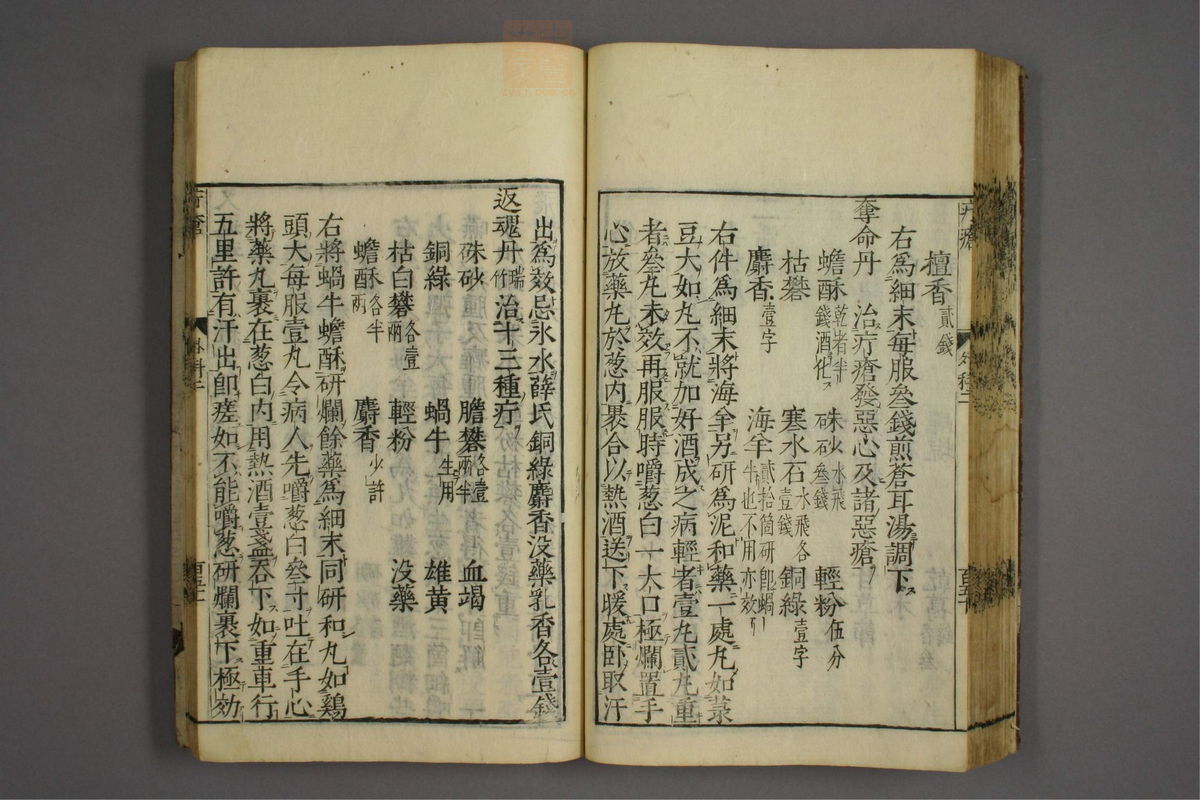 檀香貳錢
右爲細末每服叄錢煎蒼耳湯調下
奪命丹 治疔瘡發惡心及諸惡瘡
蟾酥乾者半錢酒化 硃砂水飛叄錢 輕粉伍分
枯礬 寒水石水飛各壹錢 銅綠壹字
麝香壹字 海羊貳拾箇研卽蝸牛也不用亦效
右件爲細末將海羊另研爲泥和藥一處丸如菉
豆大如丸不就加好酒成之病輕者壹丸貳丸重
者叄丸未效再服服時嚼葱白一大口極爛置手
心放藥丸於葱內裹合以熱酒送下暖處卧取汗
出爲效忌氷水薛氏銅綠麝香没藥乳香各壹錢
返魂丹瑞竹 治十三種疔
硃砂 膽礬各壹兩半 血竭
銅綠 蝸牛生用 雄黃
枯白礬各壹兩 輕粉 没藥
蟾酥各半兩 麝香少許
右將蝸牛蟾酥研爛餘藥爲細末同研和丸如鷄
頭大每服壹丸令病人先嚼葱白叄寸吐在手心
將藥丸裹在葱白內用熱酒壹盞吞下如重車行
五里許有汗出卽瘥如不能嚼葱研爛裹下極効